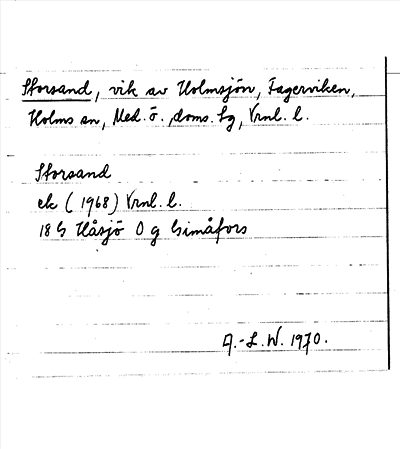 Storsand, vik av Holmsjön, Fagerviken,
Holms sn, Med. ö. doms. Lg, Vrnl. l.
Storsand
ek (1968) Vrnl. l.
18 G Håsjö 0 g Gimåfors
A.-L.W. 1970.